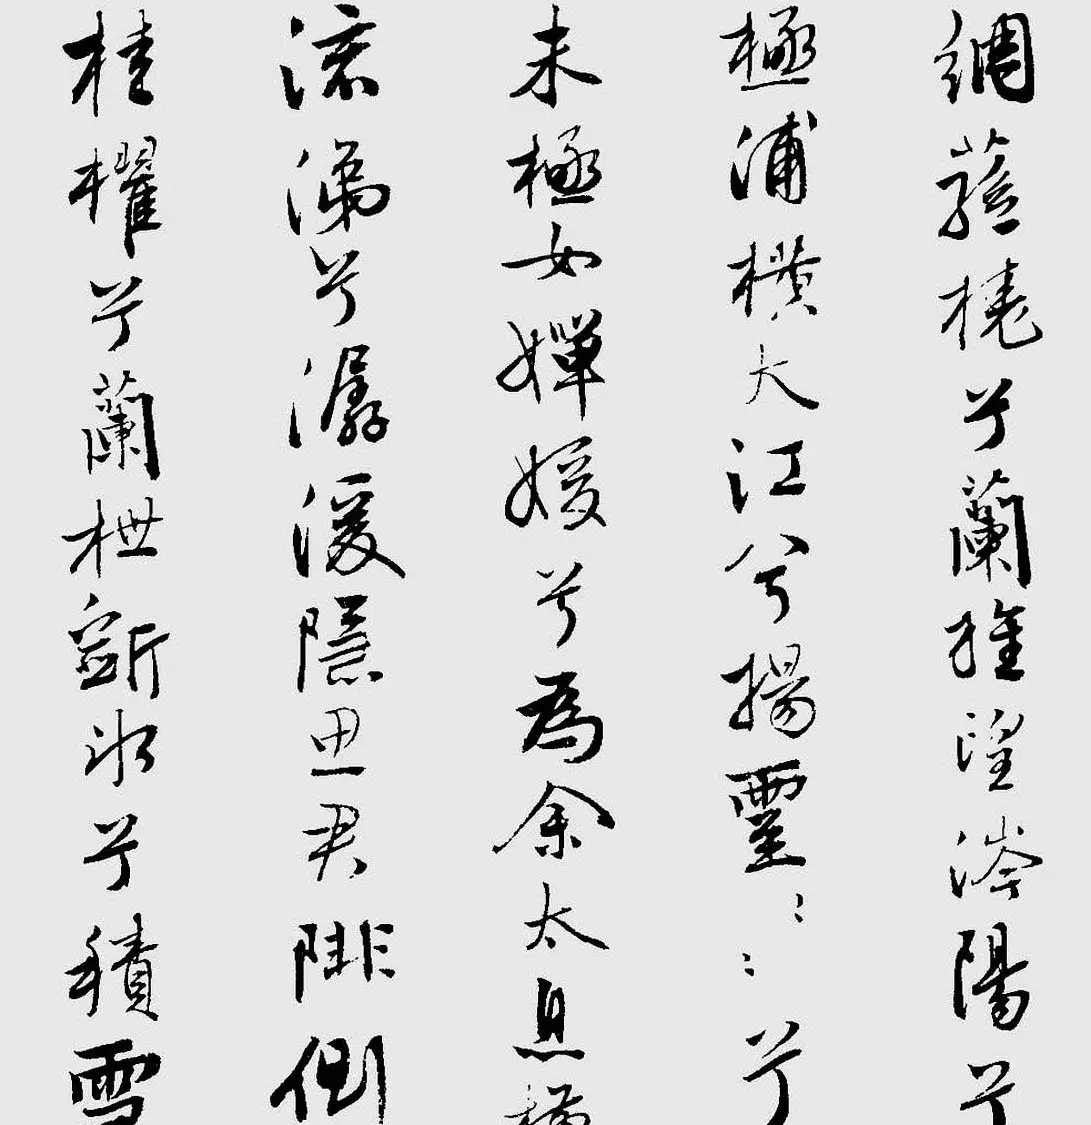 綢蓀橈兮蘭旌望涔陽兮
極浦橫大江兮揚靈〻〻兮
未極女嬋媛兮為余太息橫
流涕兮潺湲隱思君陫側
桂櫂兮蘭枻斵冰兮積雪